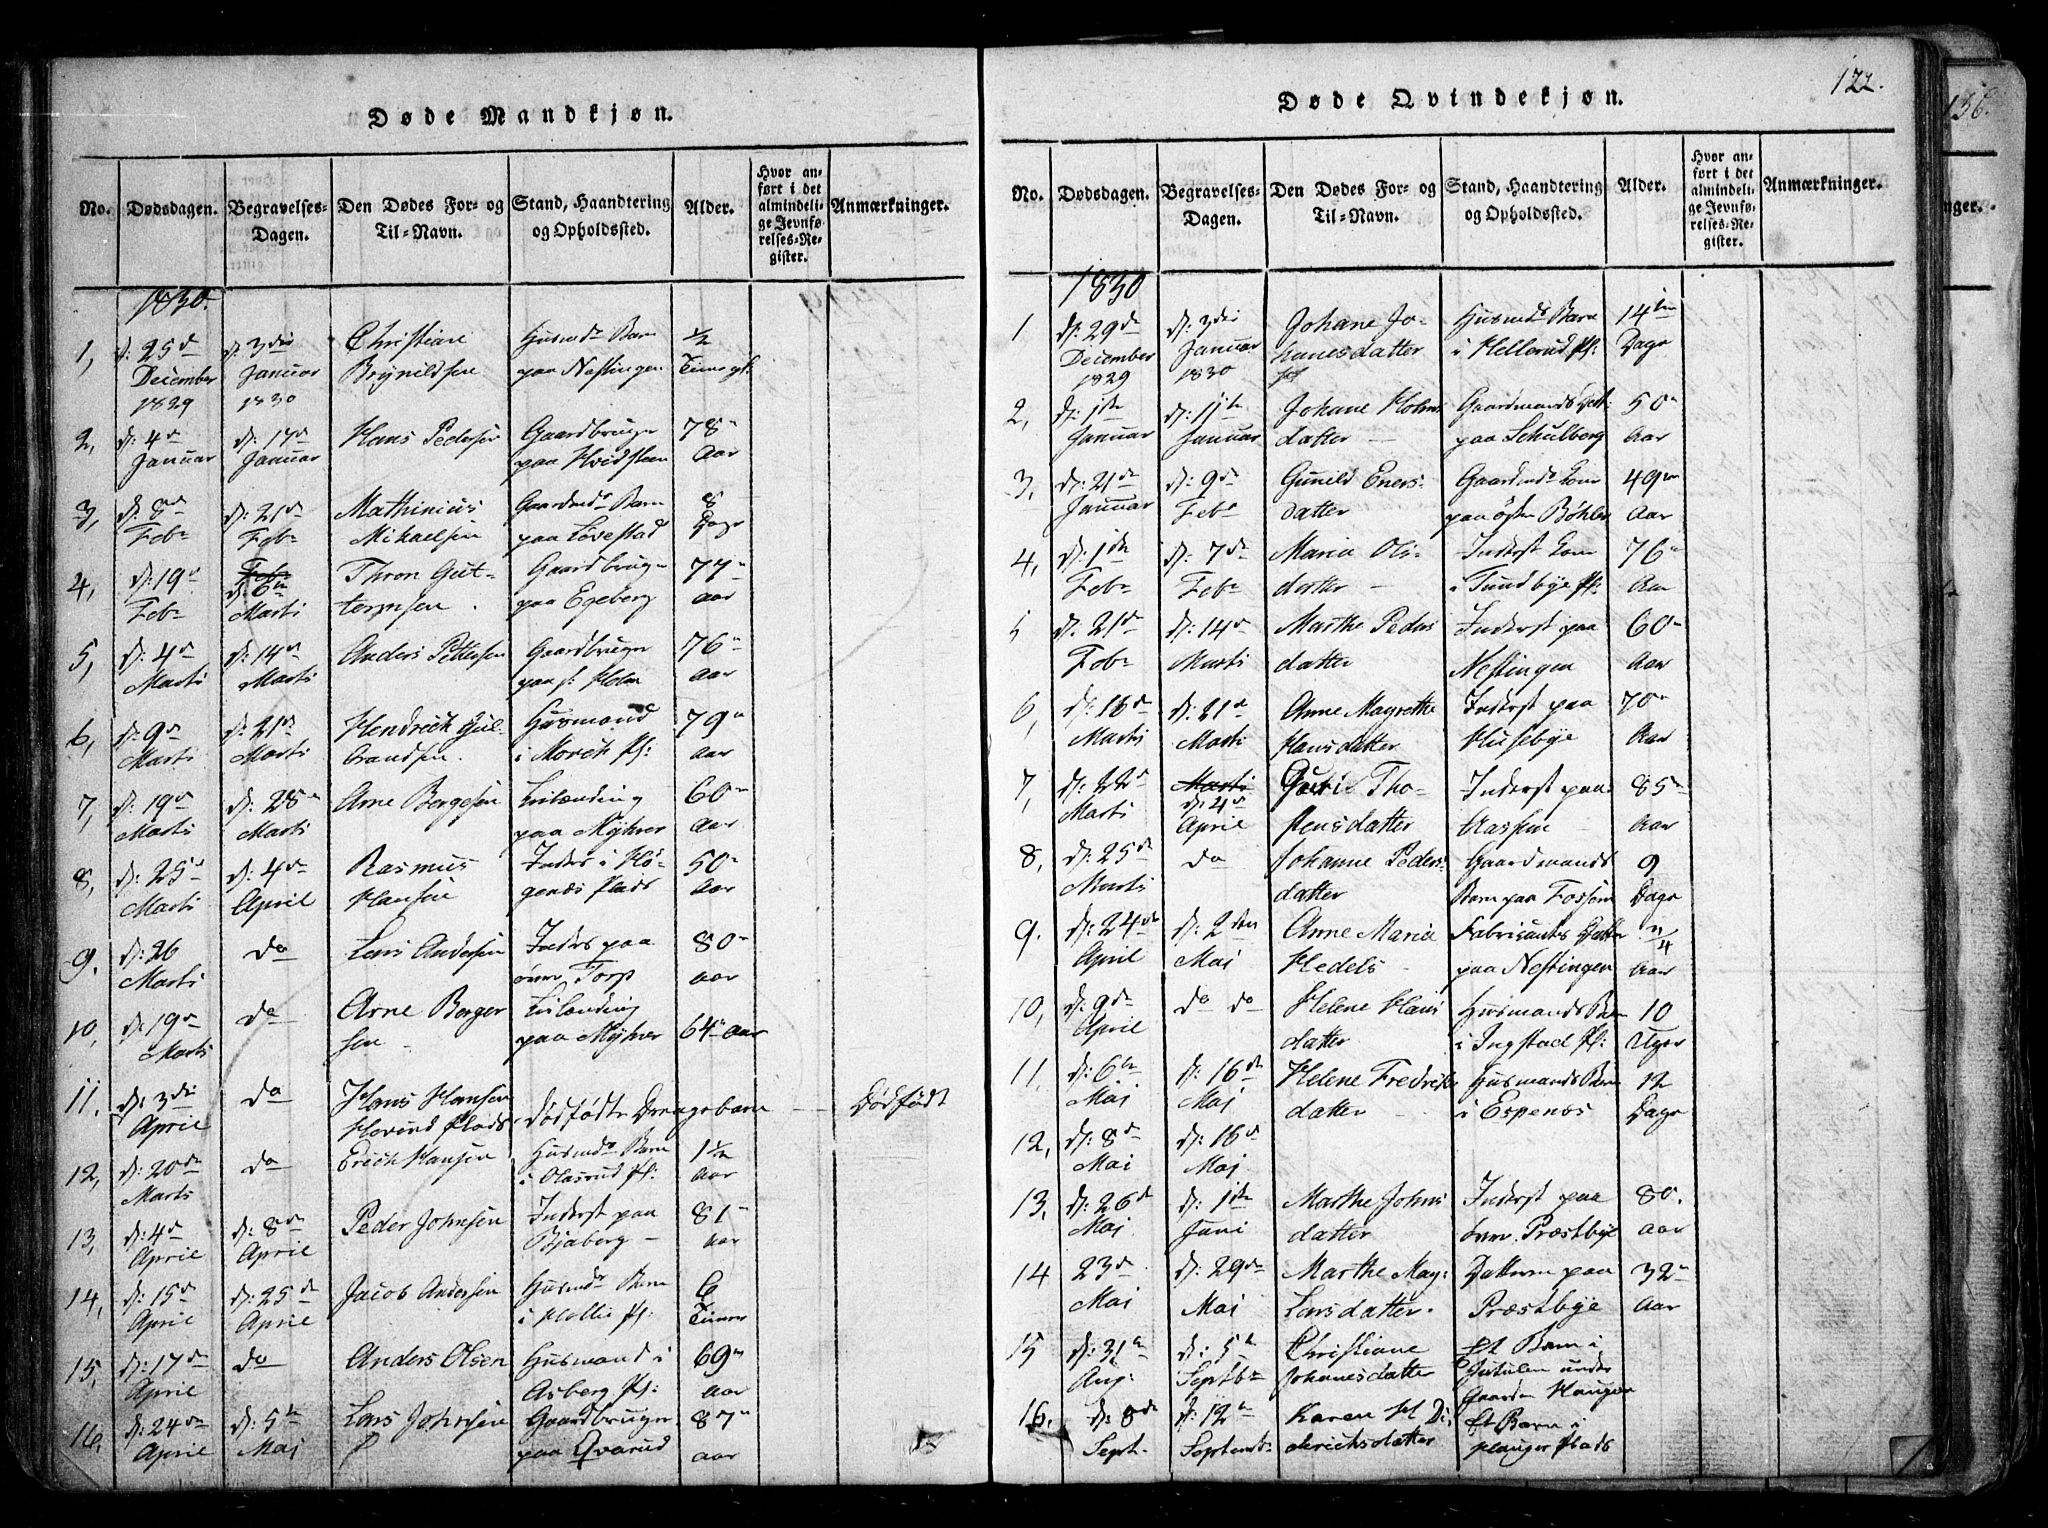 Døde Mandkjøn.
No. Dødsdagen. Begravelses-Dagen. Den Dødes For- og Til-Navn. Stand, Haandtering og Opholdssted. Alder. Hvor anført i det almindelige Jevnførelses-Register. Anmærkninger.
1830.
1, d: 25de December 1829 d: 3die Januar 1830 Christian Brynildsen Husmds Barn paa Nestingen 1/2
2, d: 4de Januar d: 17de Januar Hans Pedersen Gaardbruger paa Hvidsteen 78 Aar
3, d: 8de Febr d: 21de Febr Mathinius Mikaelsen Gaardmds Barn paa Løvestad 8 Dage
4, d: 19de Febr Febr d: 6te Marti Thron Guttormsen. Gaardbruger paa Egeberg 77 aar
5, d: 4de Marti d: 14de Marti Anders Pettersen Gaardbruger paa Holm 76 aar
6, d: 9de Marti d: 21de Marti Hendrich Gulbrandsen. Husmand i Morch Pl: 79 aar
7, d: 19de Marti d: 28de Marti Arne Bergesen paa Myhrer 60 aar
8, d: 25de Marti d: 4de April Rasmus Hansen Inders i Høgenæs Plads 50 Aar
9. d: 26 Marti do Lars Andersen Inders paa Torp 80 aar
10, d: 19de Marti do Arne Bergersen paa Myhrer 64 aar
11. d: 3die April do Hans Hansen Hovind Plads Dødfødte Drengebarn Dødfødt
12, d: 20de Marti do Erich Hansen Husmds Barn i Olasrud Pl: 1 1/2 Aar
13, d: 4de April d: 8de April Peder Johnsen Inderst paa Bjaberg 81 aar
14, d: 15de April d: 25de April Jacob Andersen Husmds Barn i Hollie Pl: 6 Timer
15, d: 17de April do Anders Olsen Husmand i Asberg Pl: 69 aar
16, d: 24de April d: 5te Maj Lars Johnsen Gaardbruger paa Qvarud 87 aar
Døde Qvindekjøn.
122.
No. Dødsdagen. Begravelses-Dagen. Den Dødes For- og Til-Navn. Stand, Haandtering og Opholdssted. Alder. Hvor anført i det almindelige Jevnførelses-Register. Anmærkninger.
1830
1 d: 29de December 1829 d: 3die Januar 1830 Johane Johanesdatter Husmds Barn i Hellerud Pl: 14ten Dage
2, d: 1te Januar d: 1te Januar Johane Holmsdatter Gaardmands paa Schulberg 50 Aar
3, d: 21de Januar d: 9de Febr Gunild Enersdatter Gaardmds Kone paa øster Bøhler 49 Aar
4, d: 1te Febr d: 7de Febr Maria Olsdatter Inderst Kone i Tundbye Pl: 76 Aar
5 d: 21de Febr d: 14de Marti Marthe Pedersdatter Inderst paa Nestingen 60 Aar
6, d: 16de Marti d: 21de Marti Anne Magrethe Hansdatter Inderst paa Husebye 70 Aar
7, d: 22de Marti Marti d: 4de April Guri Thostensdatter Inderst paa Aassen 85 Aar
8, d: 25de Marti do Johanne Pedersdatter Gaardmands Barn paa Fossum 9 Dage
9. d: 24de April d: 2den Maj Anne Maria Hedels Fabricants Datter paa Nestingen Aar
10, d: 9de April do do Helene Hansdatter Husmands Barn i Ingstad Pl: 10 Uger
11. d: 6te Maj d: 16de Maj Helene Fredriksdatter Husmands Barn i Espenes 12 Dage
12, d: 8de Maj d: 16de Maj
13, d: 26de Maj d: 1te Juni Marthe Johnsdatter Inderst paa Præstbye 80. aar
14 23de Maj d: 29de Maj Marthe Mag: Larsdatter. Datteren paa Præstbye 32 Aar
15 d: 31te Aug: d: 5te Septbr Christiane Johanesdatter Et Barn i under Gaarden Haugen
16. d: 8de Sept. d: 12te Septemb: Karen M Didericksdatter Et Barn i Haugen Plads
136.